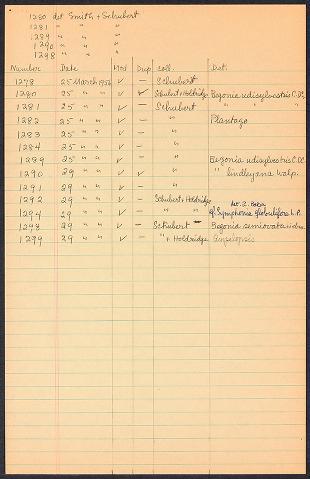 1280 det Smith + Schubert
1281 " " "
1289 " " "
1290 " " "
1298 " " "
Number Date Wood Dup coll. Det.
1278 25 March 1956 ✓ – Schubert
1280 25 " " ✓ ✓ Schubert + Holdridge Begonia udisylvestris C.DC.
1281 25 " " ✓ – Schubert " " "
1282 25 " " ✓ – " Plantago
1283 25 " " ✓ – "
1284 25 " " ✓ – "
1289 25 " " ✓ – " Begonia udisylvestris C.DC
1290 29 " " ✓ ✓ " " lindleyana Walp.
1291 29 " " ✓ – "
1292 29 " " ✓ – Schubert + Holdridge
1294 29 " " ✓ – " " cf. Symphonia globulifera L.f.
1298 29 " " ✓ – Schubert Begonia semiovata
1299 29 " " ✓ – " + Holdridge